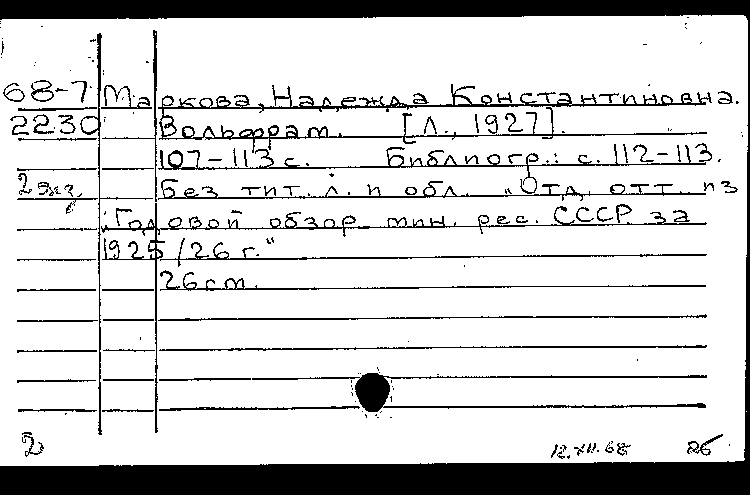 68-7 Маркова, Надежда Константиновна.
2230 Вольфрам. [Л., 1927].
107-113 с. Библиогр.: с. 112-113.
2 экз Без тит. л. и обл. „Отд. отт. из
„Годовой обзор мин. рес. СССР за
1925/26 г."
26 см.
2 12.XII.68 26